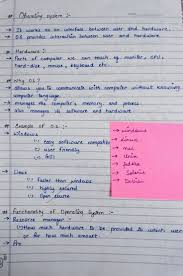 Operating system :-
→ It works as an interface between user and hardware.
→ OS provides interaction between user and hardware.
Hardware :-
→ Parts of computer we can touch eg. monitor, CPU,
hard-disk, mouse, keyboard etc.
Why OS?
→ allows you to communicate with computer without knowing
computer language.
→ manages the computer's memory and process
→ also manages its software and hardware.
Example of O.S :-
→ Windows
(i) easy software compatible
(ii) user friendly
(iii)
→ Linux
(i) Faster than windows
(ii) highly secured
(iii) Open source
→ windows
→ Linux
→ mac
→ Unix
→ fedora
→ Solaris
→ Debian
Functionality of Operating System :-
→ Resource manager :-
(i) How much hardware to be provided to which user
or for how much amount.
→ Pro